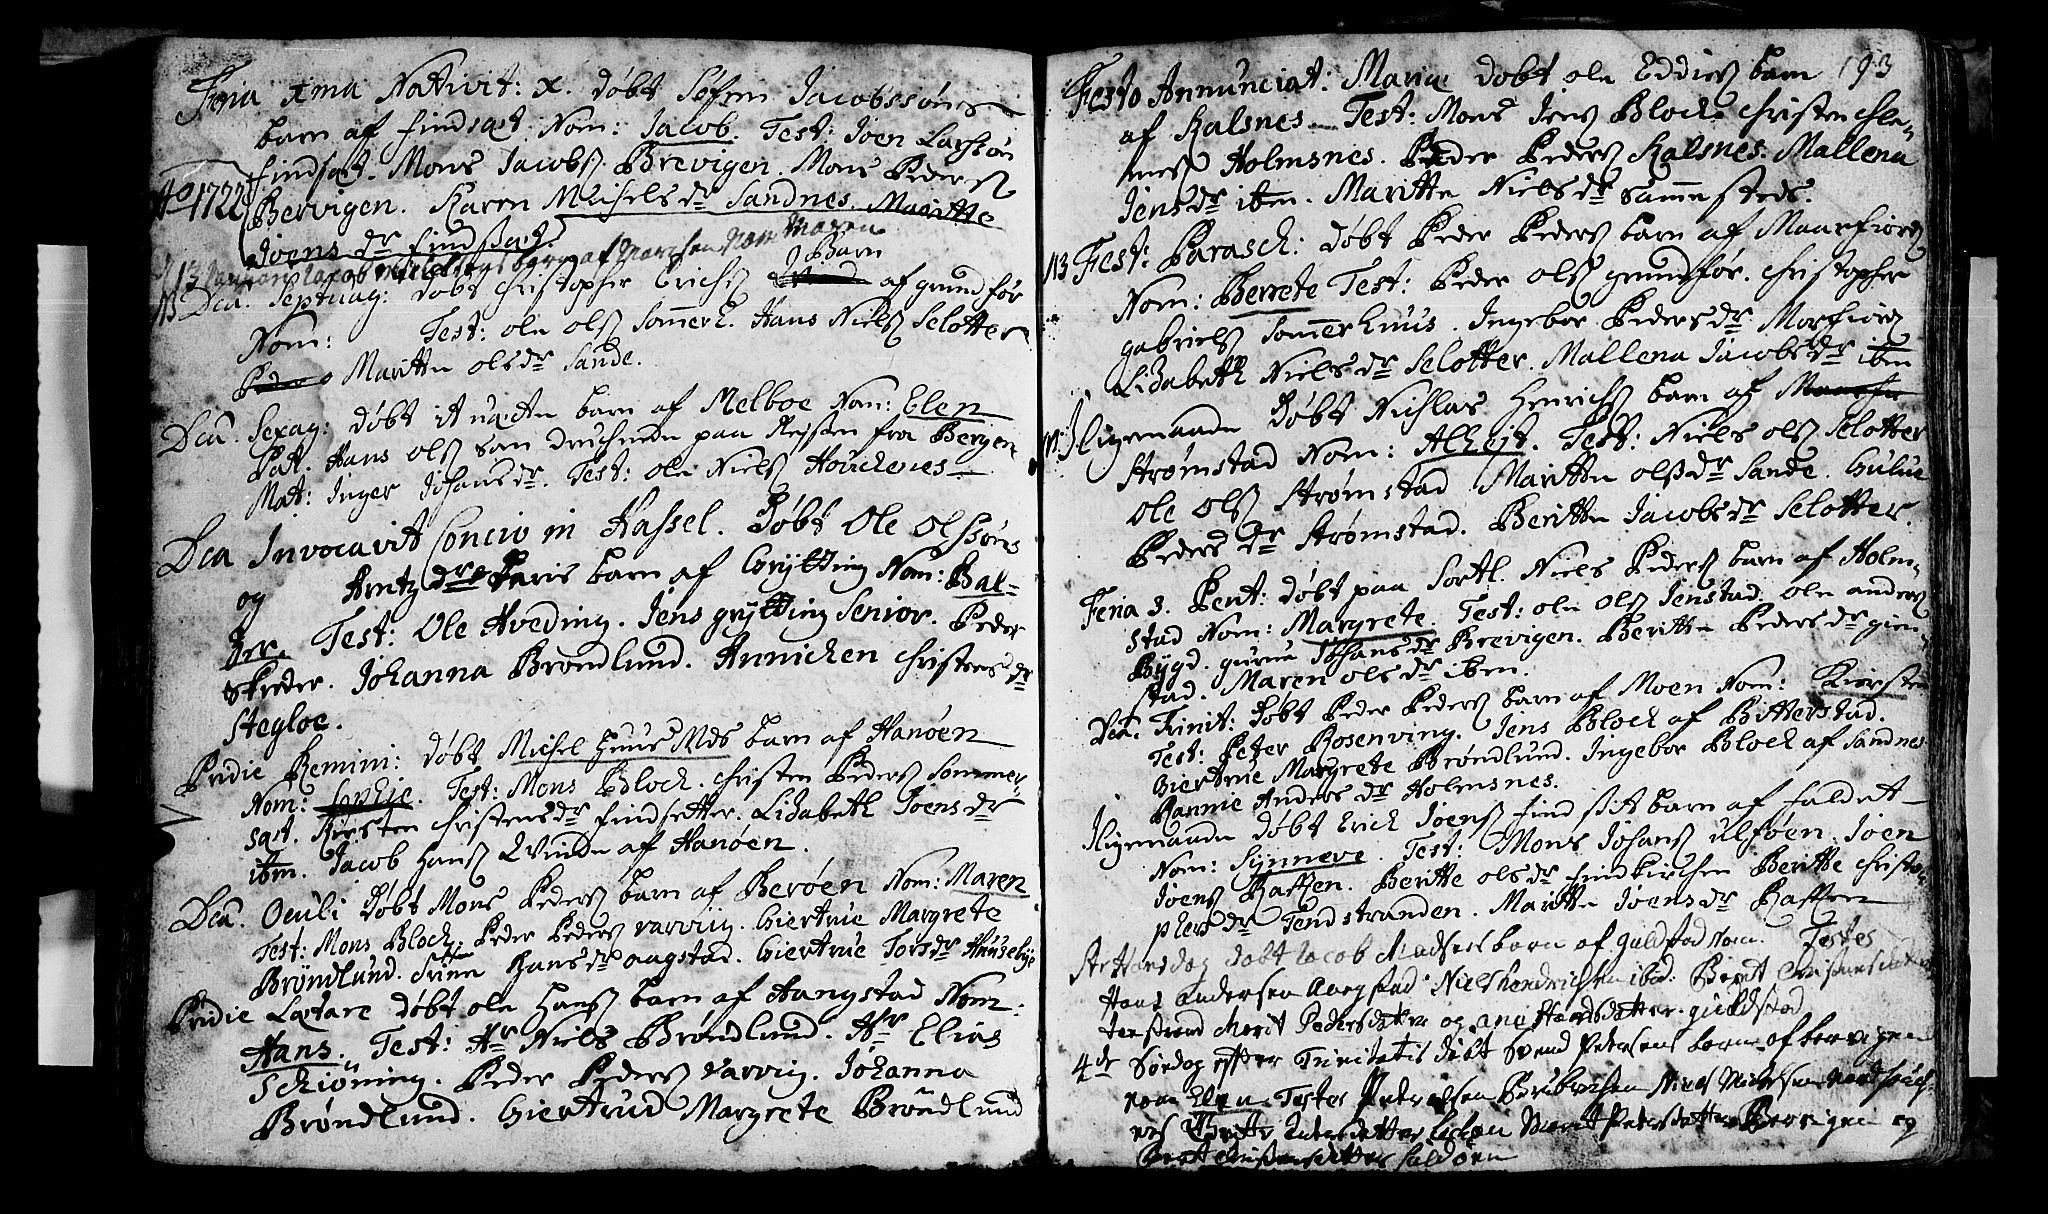 Feria 1ma Nativit: X. døbt Søfren Jacobssøns
barn af findsæt Nom: Jacob. Test: Joen Larssøn
findsæt. Mons Jacobs Brevigen. Mons Peders
Ao 1722
Bervigen. Karen Michels dr Sandnes. Maritte
Joens dr findsæt.
Barn
Dca. Septuag: døbt Christopher Erichs af grundfør
Nom: Test: ole ols Sommerh. Hans Niels Selotter
Maritte ols dr Sande.
Dca. Sexag: døbt it uæcte barn af Melboe Nom: Elen
Pat. Hans ols som druchnede paa Rejsen fra Bergen
Mat: Inger Johans dr. Test: ole Niels Houckenes
Dca Invocavit Concio in Hassel. Døbt Ole Olssøns
og Arntz dr barn af Grytting Nom: Bal-
zer. Test: Ole Hveding. Jens grytting Senior. Peder
Skreder. Johanna Brøndlund. Annichen Christens dr
Stegloe.
Pridie Remini: døbt Michel Huus Mds barn af Hanøen
Nom: Sophie. Test: Mons Block. Christen Peders Sommer-
sæt. Kirsten Christens dr findsetter. Lisabeth Joens dr
ibm. Jacob Hans Qvinde af Hanøen.
Dca. Oculi Døbt Mons Peders barn af Berøen Nom: Maren
Test: Mons Block. Peder Peders varviig. Giertrue Margrete
Brøndlund. Trine Hans dr aagstad. Giertrue Tors dr
Pridie Lætare døbt ole Hans barn af Hangstad Nom:
Hans. Test: Hr Niels Brøndlund. Hr Elias
Schiøning. Peder Peders varviig. Johanna
Brøndlund. Giertrud Margrete Brøndlund
193
Festo Annunciat: Mariæ døbt ole Eddies barn
af Kalsnes. Test: Mons Jens Block Christen Cle-
mes Holmsnes. Peder Peders Kalsnes. Mallena
Jens dr ibm. Maritte Niels dr sammesteds.
Fest: Parasch: døbt Peder Peders barn af Maarfiord
Nom: Berrete Test: Peder ols grundfør. Christopher
gabriels Sommerhuus. Ingebor Peders dr Morfiord
Lisabeth Niels dr Selotter. Mallena Jacobs dr ibm
Iligemaade Døbt Nichlas Henrichs barn af
Strømstad Nom: Alheit. Test: Niels ols Selotter
Ole Ols Strømstad Maritte olss dr Sande. Gulue
Peders dr Strømstad. Beritte Jacobs dr Selotter.
Feria 3. Pent: døbt paa Sortl. Niels Peders barn af Holm-
stad Nom: Margrete. Test: ole Ols Jenstad. ole anders
Bygd. gurue Johans dr Brevigen. Beritte Peders dr gien-
stad. Maren ols dr ibm.
Dca. Trinit: Døbt Peder Peders barn af Moen Nom: Kiersten
Test: Peter Rosenving. Jens Block af Bitterstad.
Giertrue Margrete Brøndlund. Ingebor Block af Sandnes
Rannie Anders dr Holmsnes.
Iligemaade døbt Erich Joens barn af faldet
Nom: Synneve. Test: Mons Johans ulføen. Joen
Joens Raften. Beritte ols dr findkirchen Beritte Christo-
phers dr Tendstranden. Maritte Joens dr Raften
St Hansdag døbt Jacob Madsens barn af Guldstad Nom. Testes
Hans Andersen Aargstad Niels Hendrichsen ibid:
Merit Pedersdatter og Ane Hansdatter. guldstad
4de Søndag effter Trinitatis døbt Svend Petersens barn af bervigen
nom Elen. Testes